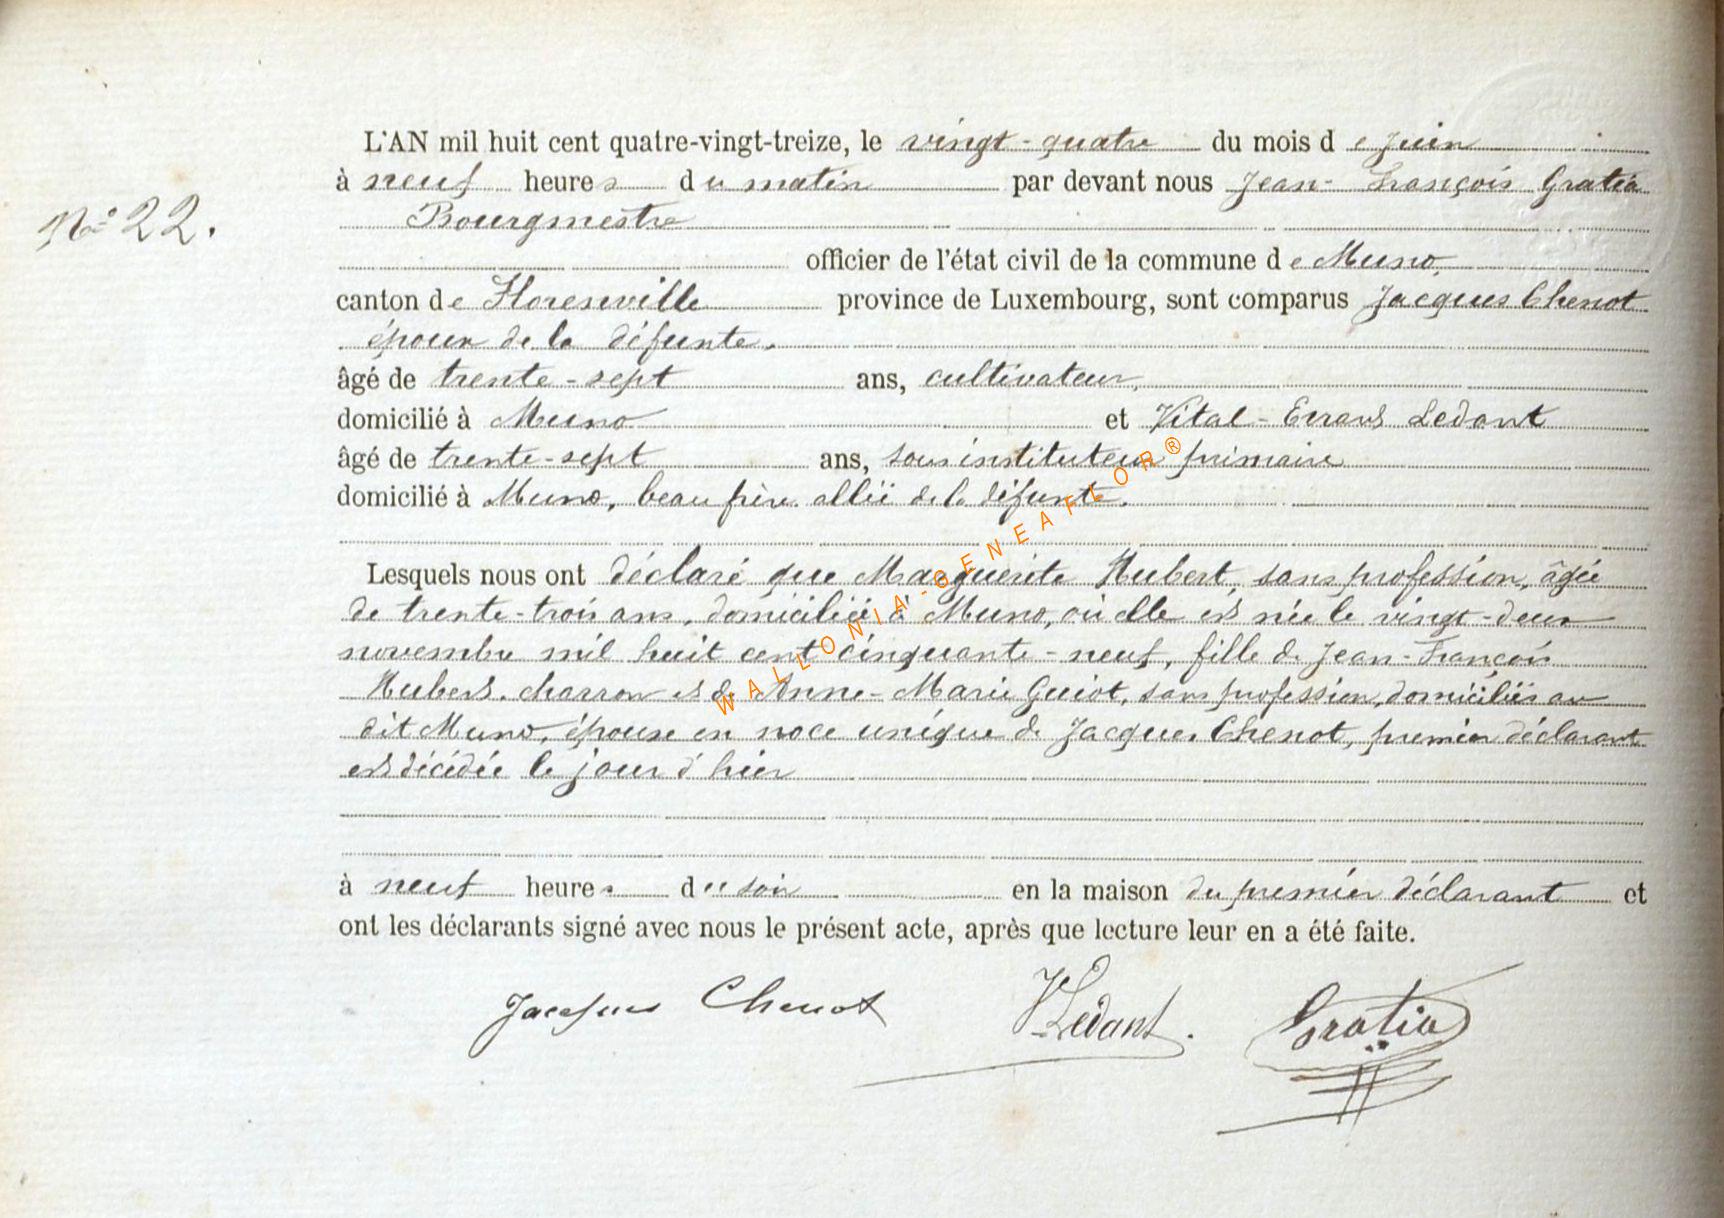 L'AN mil huit cent quatre-vingt-treize, le vingt-quatre du mois de Juin
à neuf heures du matin par devant nous Jean-François Gratia
Nº 22.
Bourgmestre
officier de l'état civil de la commune de Muno,
canton de Florenville province de Luxembourg, sont comparus Jacques Chenot
époux de la défunte.
âgé de trente-sept ans, cultivateur,
domicilié à Muno et Vital- Ledant
âgé de trente-sept ans, sous instituteur primaire
domicilié à Muno, beau frère allié de la défunte.
Lesquels nous ont déclaré que Marguerite Hubert, sans profession, âgée
de trente-trois ans, domiciliée à Muno, où elle est née le vingt-deux
novembre mil huit cent cinquante-neuf, fille de Jean-François
Hubert, charron et de Anne-Marie Guiot, sans profession, domiciliés au
dit Muno, épouse en noce unique de Jacques Chenot, premier déclarant
est décédée le jour d'hier
à neuf heures du soir en la maison du premier déclarant et
ont les déclarants signé avec nous le présent acte, après que lecture leur en a été faite.
Jacques Chenot VLedant. Gratia
WALLONIA-GENEAFLOR®